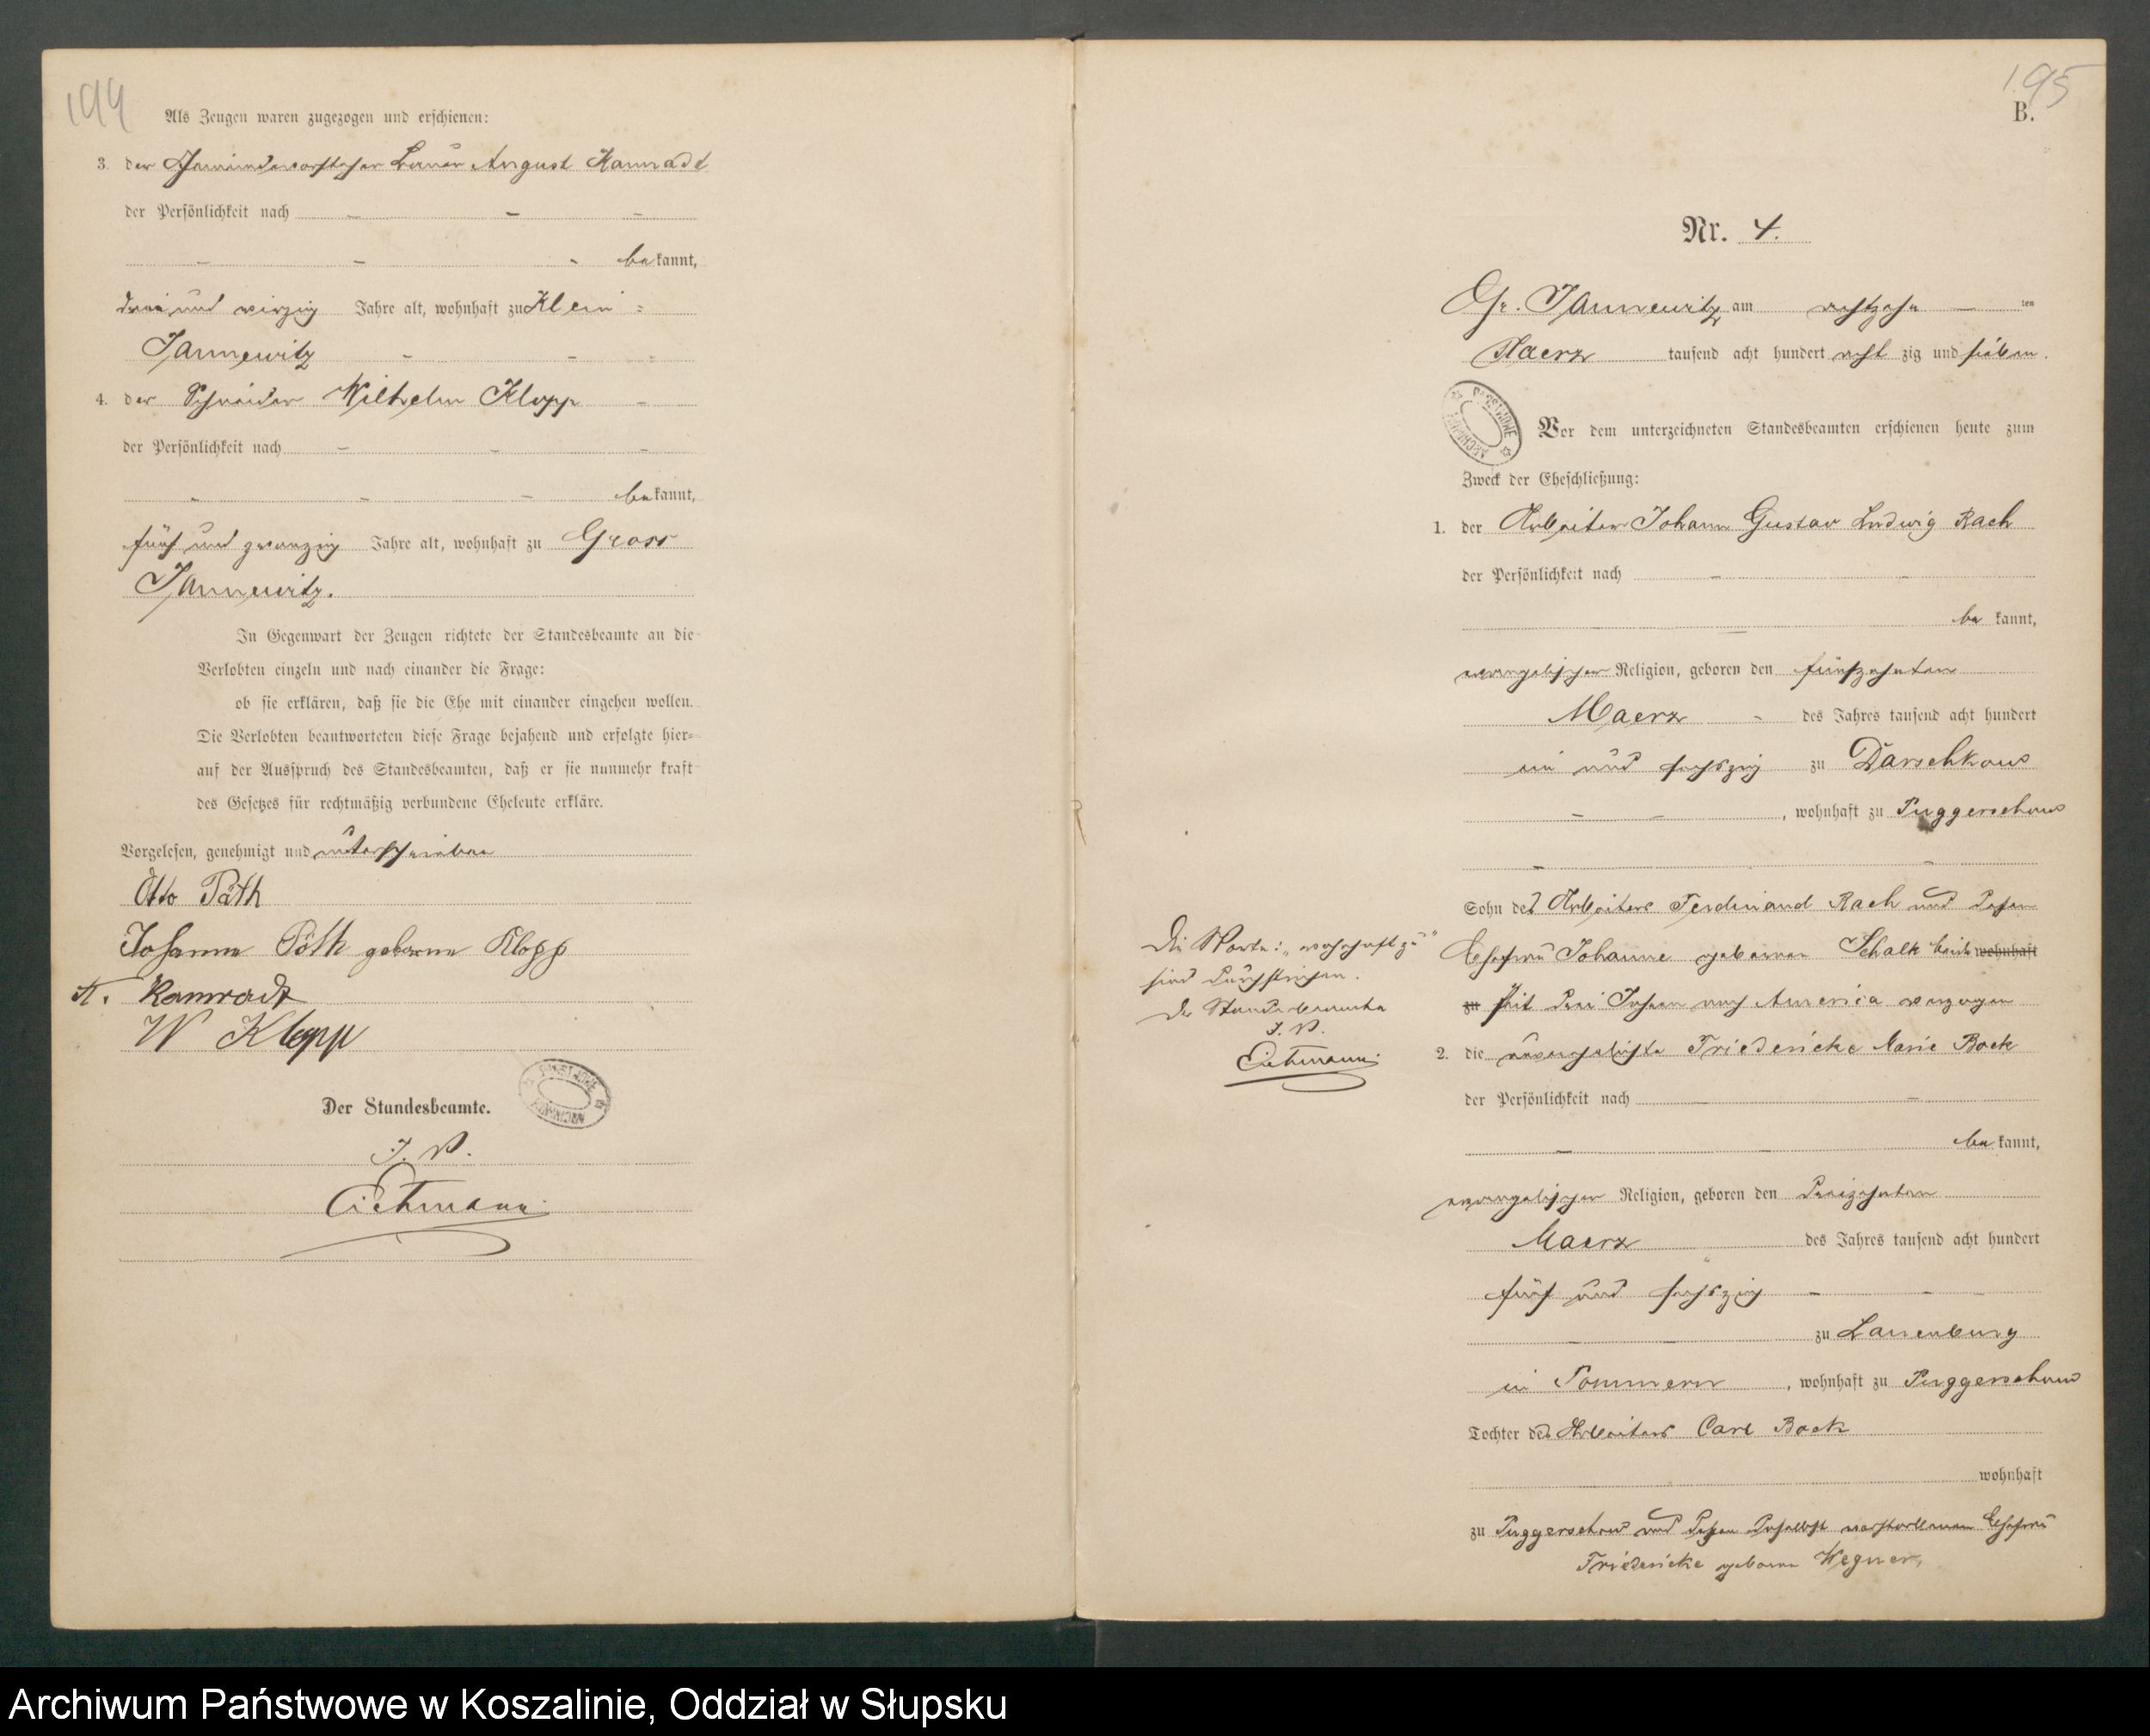 194
Als Zeugen waren zugezogen und erschienen:
3. der Gemeindevorsteher Bauer August Kamradt
der Persönlichkeit nach - - -
- - - bekannt,
drei und vierzig Jahre alt, wohnhaft zu Klein =
Jannewitz - - -
4. der Schneider Wilhelm Klopp -
der Persönlichkeit nach - - -
- - - bekannt,
fünf und zwanzig Jahre alt, wohnhaft zu Gross
Jannewitz.
In Gegenwart der Zeugen richtete der Standesbeamte an die
Verlobten einzeln und nach einander die Frage:
ob sie erklären, daß sie die Ehe mit einander eingehen wollen.
Die Verlobten beantworteten diese Frage bejahend und erfolgte hier-
auf der Ausspruch des Standesbeamten, daß er sie nunmehr kraft
des Gesetzes für rechtmäßig verbundene Eheleute erkläre.
Vorgelesen, genehmigt und unterschrieben
Otto Päth
Johanne Päth geborne Klopp
A. Kamradt
W Klopp
Der Standesbeamte.
J. V.
Eichmann.
195
B.
Nr. 4.
Gr. Jannewitz am achtzehn - ten
Maerz tausend acht hundert acht zig und sieben.
Vor dem unterzeichneten Standesbeamten erschienen heute zum
Zweck der Eheschließung:
1. der Arbeiter Johann Gustav Ludwig Rach
der Persönlichkeit nach - -
- bekannt,
evangelischer Religion, geboren den fünfzehnten
Maerz - des Jahres tausend acht hundert
ein und sechszig zu Darschkow
- - , wohnhaft zu Puggerschow
- -
Sohn des Arbeiters Ferdinand Rach und dessen
Ehefrau Johanne geborenen Schalk beide wohnhaft
zu seit drei Jahren nach America verzogen
Die Worte: „wohnhaft zu"
sind durchstrichen.
Der Standesbeamte
J. V.
Eichmann.
2. die unverehelichte Friedericke Marie Bock
der Persönlichkeit nach - -
- - bekannt,
evangelischer Religion, geboren den dreizehnten
Maerz des Jahres tausend acht hundert
fünf und sechszig - -
- - zu Lauenburg
in Pommern , wohnhaft zu Puggerschow
Tochter des Arbeiters Carl Bock
wohnhaft
zu Puggerschow und dessen daselbst verstorbenen Ehefrau
Friedericke geborne Wegner,
Archiwum Państwowe w Koszalinie, Oddział w Słupsku